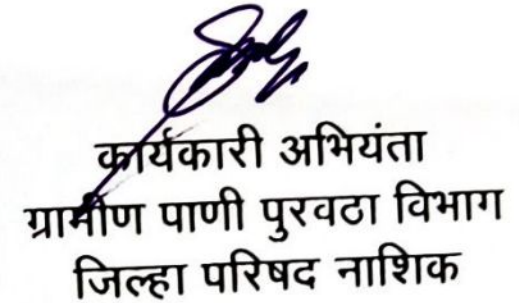 कार्यकारी अभियंता
ग्रामीण पाणी पुरवठा विभाग
जिल्हा परिषद नाशिक